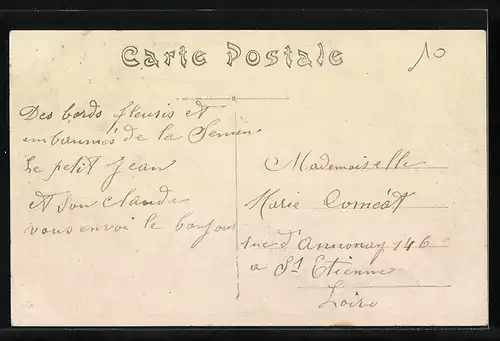 Carte Postale
10
Des bords fleuris et
embaumés de la Semène
Le petit Jean
et son claude
vous envoi le bonjour
Mademoiselle
Marie
rue d'Annonay 146
a St Etienne
Loire